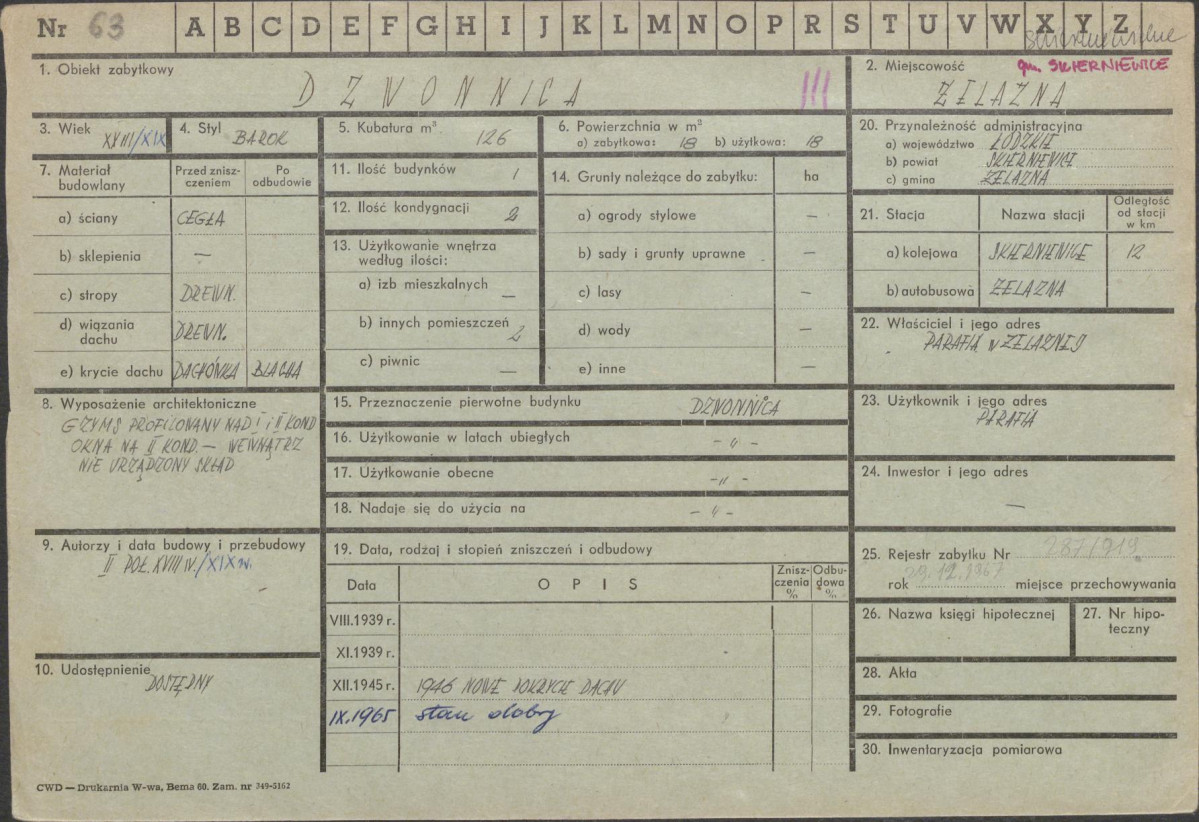 Nr 63 A B C D E F G H I J K L M N O P R S T U V W X Y Z
1. Obiekt zabytkowy
DZWONNICA III
2. Miejscowość
gm. SKIERNIEWICE
ŻELAZNA
3. Wiek
XVIII/XIX
4. Styl
BAROK
5. Kubatura m³
126
6. Powierzchnia w m²
a) zabytkowa: 18 b) użytkowa: 18
7. Materiał budowlany
Przed zniszczeniem
Po odbudowie
a) ściany CEGŁA
b) sklepienia —
c) stropy DREWN.
d) wiązania dachu DREWN.
e) krycie dachu DACHÓWKA BLACHA
8. Wyposażenie architektoniczne
GZYMS PROFILOWANY NAD I i II KOND
OKNA NA II KOND. — WEWNĄTRZ
NIE URZĄDZONY SKŁAD
9. Autorzy i data budowy i przebudowy
II POŁ. XVIII W./XIX w.
10. Udostępnienie
DOSTĘPNY
11. Ilość budynków 1
12. Ilość kondygnacji 2
13. Użytkowanie wnętrza
według ilości:
a) izb mieszkalnych —
b) innych pomieszczeń 2
c) piwnic —
14. Grunty należące do zabytku: ha
a) ogrody stylowe —
b) sady i grunty uprawne —
c) lasy —
d) wody —
e) inne —
15. Przeznaczenie pierwotne budynku DZWONNICA
16. Użytkowanie w latach ubiegłych - " -
17. Użytkowanie obecne - " -
18. Nadaje się do użycia na - " -
19. Data, rodzaj i stopień zniszczeń i odbudowy
Data OPIS Zniszczenia % Odbudowa %
VIII.1939 r.
XI.1939 r.
XII.1945 r. 1946 NOWE POKRYCIE DACHU
IX.1965 stan dobry
20. Przynależność administracyjna
a) województwo ŁÓDZKIE
b) powiat SKIERNIEWICE
c) gmina ŻELAZNA
21. Stacja Nazwa stacji Odległość od stacji w km
a) kolejowa SKIERNIEWICE 12
b) autobusowa ŻELAZNA
22. Właściciel i jego adres
PARAFIA W ŻELAZNEJ
23. Użytkownik i jego adres
PARAFIA
24. Inwestor i jego adres
—
25. Rejestr zabytku Nr 287/919
rok 29.12.1967 miejsce przechowywania
26. Nazwa księgi hipotecznej
27. Nr hipoteczny
28. Akta
29. Fotografie
30. Inwentaryzacja pomiarowa
CWD — Drukarnia W-wa, Bema 60. Zam. nr 349-5162